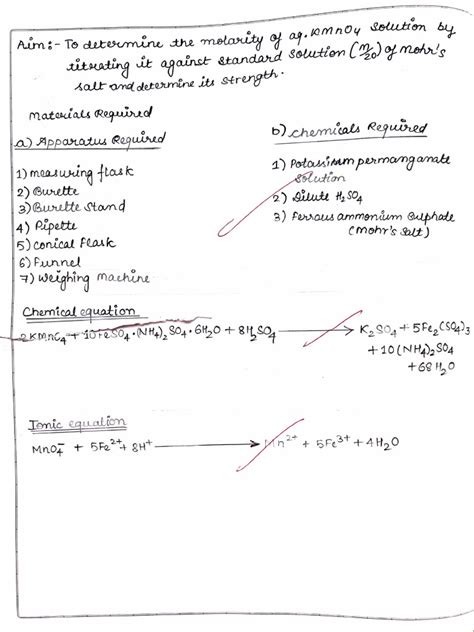 Aim:- To determine the molarity of aq. KMnO4 solution by
titrating it against standard solution (M/20) of Mohr's
salt and determine its strength.
Materials Required
a) Apparatus Required
1) measuring flask
2) Burette
3) Burette Stand
4) Pipette
5) conical flask
6) Funnel
7) weighing machine
b) chemicals Required
1) Potassium permanganate
solution
2) Dilute H2SO4
3) Ferrous ammonium sulphate
(Mohr's salt)
Chemical equation
2KMnO4 + 10FeSO4·(NH4)2SO4·6H2O + 8H2SO4 → K2SO4 + 5Fe2(SO4)3
+ 10(NH4)2SO4
+ 68H2O
Ionic equation
MnO4⁻ + 5Fe²⁺ + 8H⁺ → Mn²⁺ + 5Fe³⁺ + 4H2O